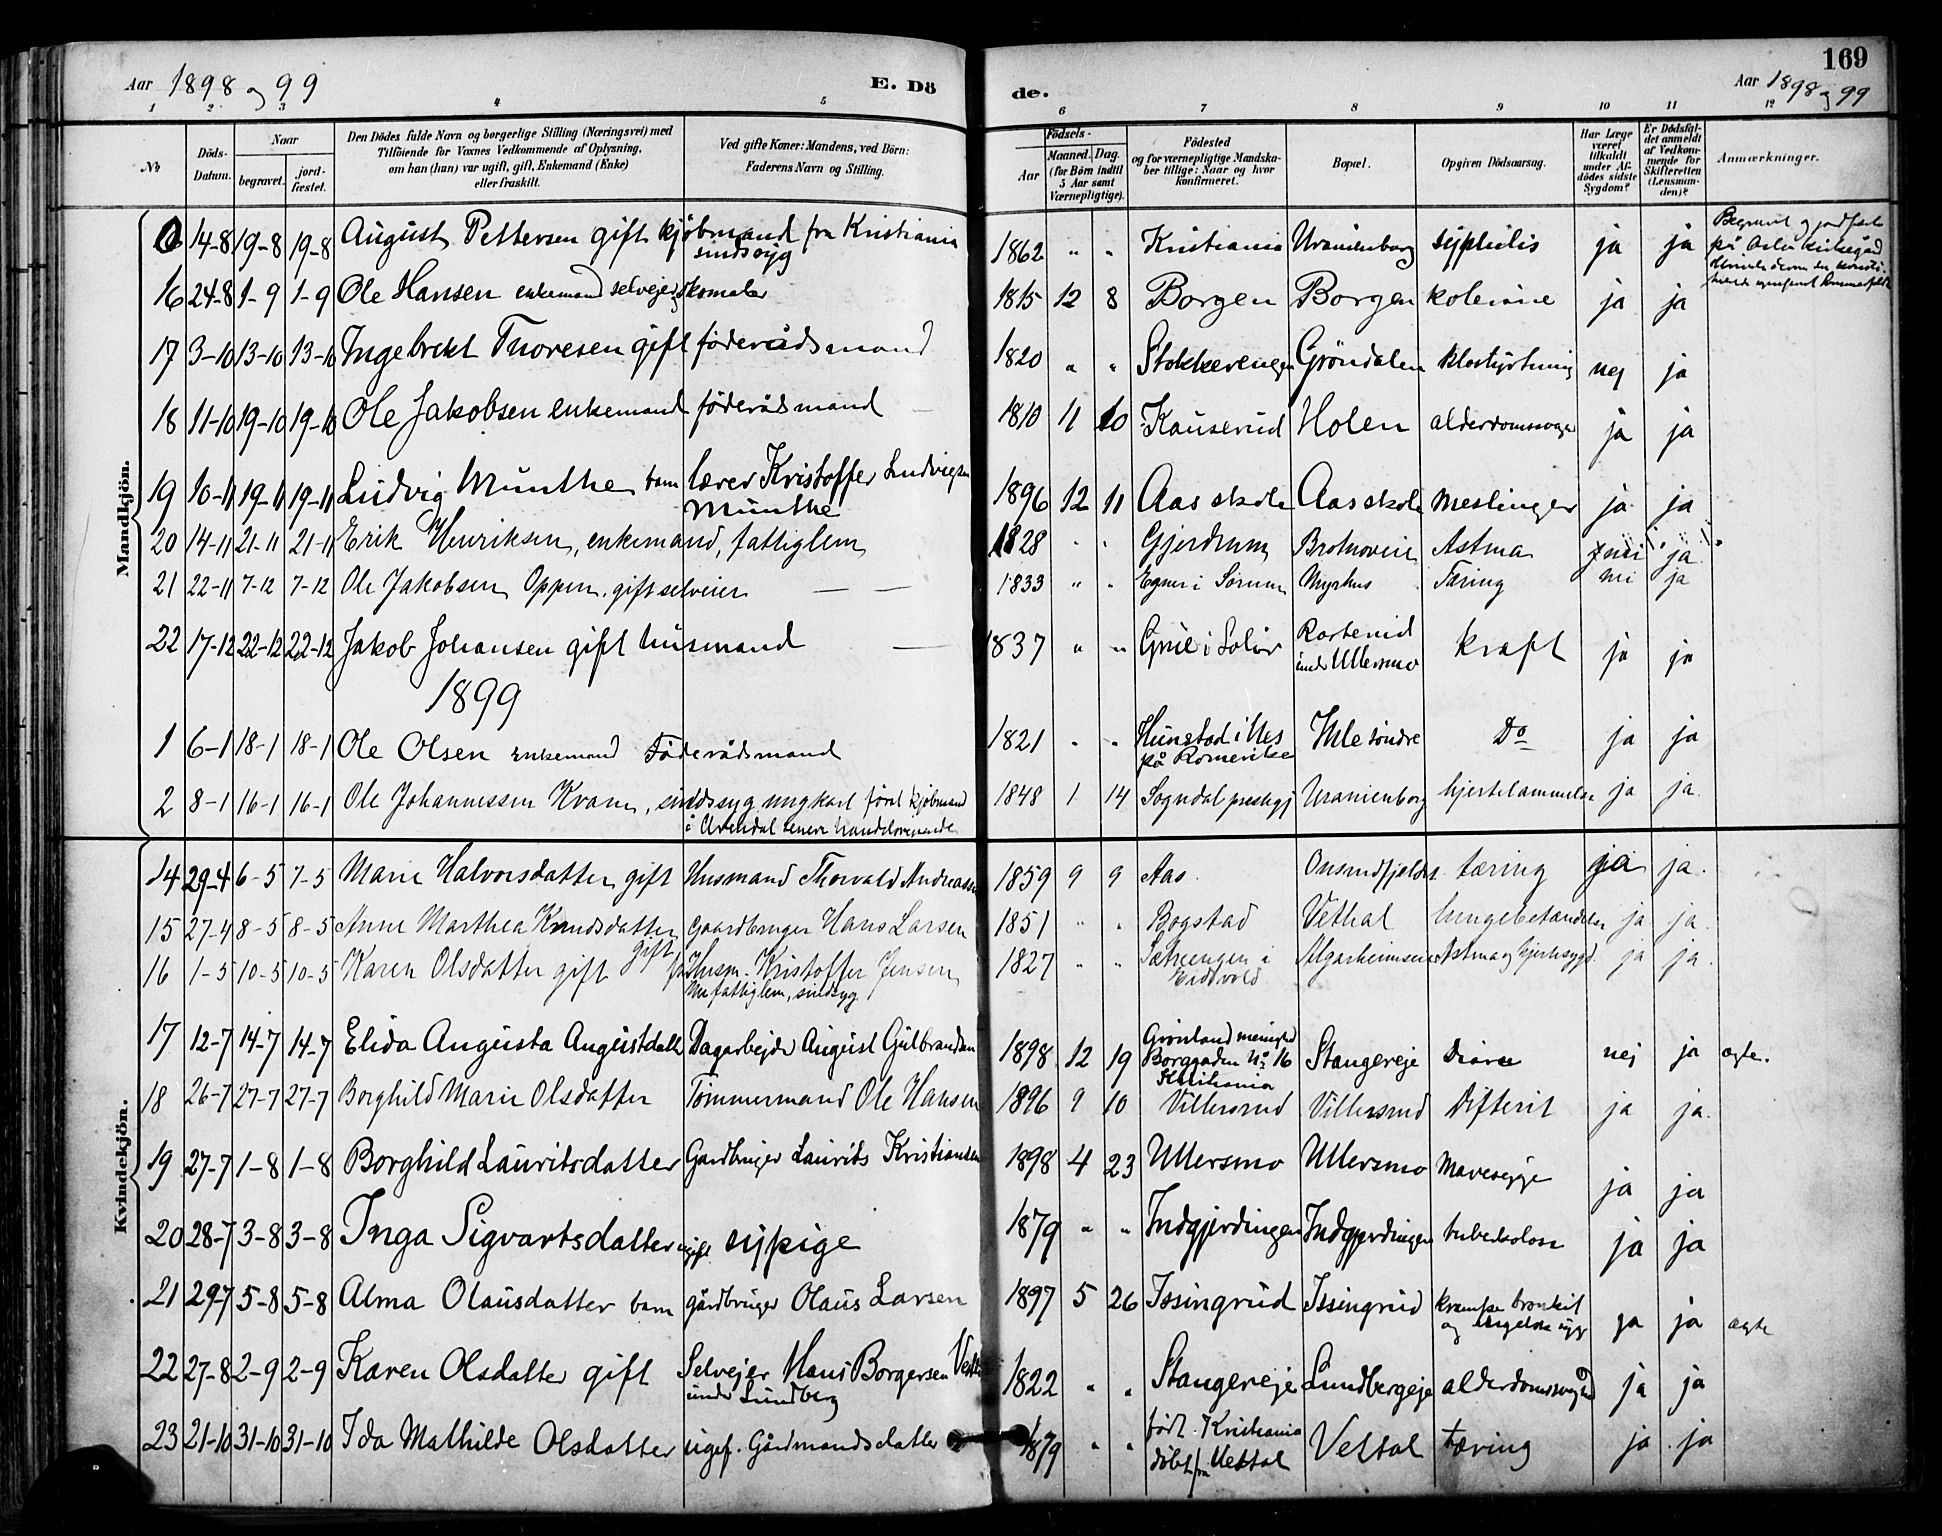 Aar 1898 og 99 E. Dö de. Aar 1898 og 99 169
1 2 3 4 5 6 7 8 9 10 11 12
No Döds-Datum. Naar begravet. jord-fæstet. Den Dödes fulde Navn og borgerlige Stilling (Næringsvei) med Tilföiende for Voxnes Vedkommende af Oplysning, om han (hun) var ugift, gift, Enkemand (Enke) eller fraskilt. Ved gifte Koner: Mandens, ved Börn: Faderens Navn og Stilling. Födsels- Aar Maaned. Dag. (for Börn indtil 5 Aar samt Værnepligtige). Födested og for værnepligtige Mandskaber tillige: Naar og hvor konfirmeret. Bopæl. Opgiven Dödsaarsag. Har Læge været tilkaldt under Afdödes sidste Sygdom? Er Dödsfaldet anmeldt af Vedkommende for Skifteretten (Lensmanden)? Anmærkninger.
Mandkjön.
14-8 19-8 19-8 August Pettersen gift kjöbmand fra Kristiania sindssyg 1862 " " Kristiania Uranienborg syphilis ja ja
16 24-8 1-9 1-9 Ole Hansen enkemand selvejer skomaker 1815 12 8 Borgen Borgen kolerine ja ja
17 3-10 13-10 13-10 Ingebrekt Thoresen gift föderådsmand 1820 " " Stokkerengen Gröndalen nej ja
18 11-10 19-10 19-10 Ole Jakobsen enkemand föderådsmand 1810 11 10 Kauserud Holen ja ja
19 10-11 19-11 19-11 Ludvig Munthe barn lærer Kristoffer Ludvigsen Munthe 1896 12 11 Aas skole Aas skole meslinger ja ja
20 14-11 21-11 21-11 Erik Henriksen, enkemand, fattiglem 1828 " " Gjerdrum Astma nei ja
21 22-11 7-12 7-12 Ole Jakobsen Oppen, gift selveier 1833 " " Egner i Sörum Myrhus Tæring nei ja
22 17-12 22-12 22-12 Jakob Johansen gift husmand 1837 " " Grue i Solör under Ullersmo kræft ja ja
1899
1 6-1 18-1 18-1 Ole Olsen Enkemand Föderådsmand 1821 " " Hunstad i Nes på Romerike Ihle söndre Do ja ja
2 8-1 16-1 16-1 Ole Johannessen Kvam, sindssyg ungkarl först kjöbmand i Arendal senere handelsreisende 1848 1 14 Sogndal prestegj Uranienborg hjertelammelse ja ja
Kvindekjön.
14 29-4 6-5 7-5 Marie Halvorsdatter gift Husmand Thorvald Andreassen 1859 9 9 Aas tæring ja ja
15 27-4 8-5 8-5 Anne Marthea Knudsdatter gift Gaardbruger Hans Larsen 1851 " " Bogstad Vethal lungebetændelse ja ja
16 1-5 10-5 10-5 Karen Olsdatter gift Husm. Kristoffer Jensen fattiglem, sindsyg 1827 " " Sætreengen i Eidsvold Algarheimseie Astma og hjertesygd ja ja
17 12-7 14-7 14-7 Elida Augusta Augustdatter Dagarbejder August Gulbrandsen 1898 12 19 Grönland menighed Borggaden No 16 Kristiania Stangereje Diaree nej ja ægte.
18 26-7 27-7 27-7 Borghild Marie Olsdatter Tömmermand Ole Hansen 1896 9 10 Villersrud Villersrud Difterit ja ja
19 27-7 1-8 1-8 Borghild Lauritsdatter Gardbruger Laurits Kristiansen 1898 4 23 Ullersmo Ullersmo Mavesyge ja ja
20 28-7 3-8 3-8 Inga Sigvartsdatter ugift sypige 1879 " " Indgjerdingen Indgjerdingen tuberkolose ja ja
21 29-7 5-8 5-8 Alma Olausdatter barn gårdbruger Olaus Larsen 1897 5 26 Issingrud Issingrud krampe bronkit og engelsk syge ja ja ægte
22 27-8 2-9 2-9 Karen Olsdatter gift Selvejer Hans Borgersen under Lundberg 1822 " " Stangereje Lundbergeje alderdomssvaghed ja ja
23 21-10 31-10 31-10 Ida Mathilde Olsdatter ugif. Gårdmandsdatter 1879 " " född Kristiania döbt fra Vettal Vettal tæring ja ja